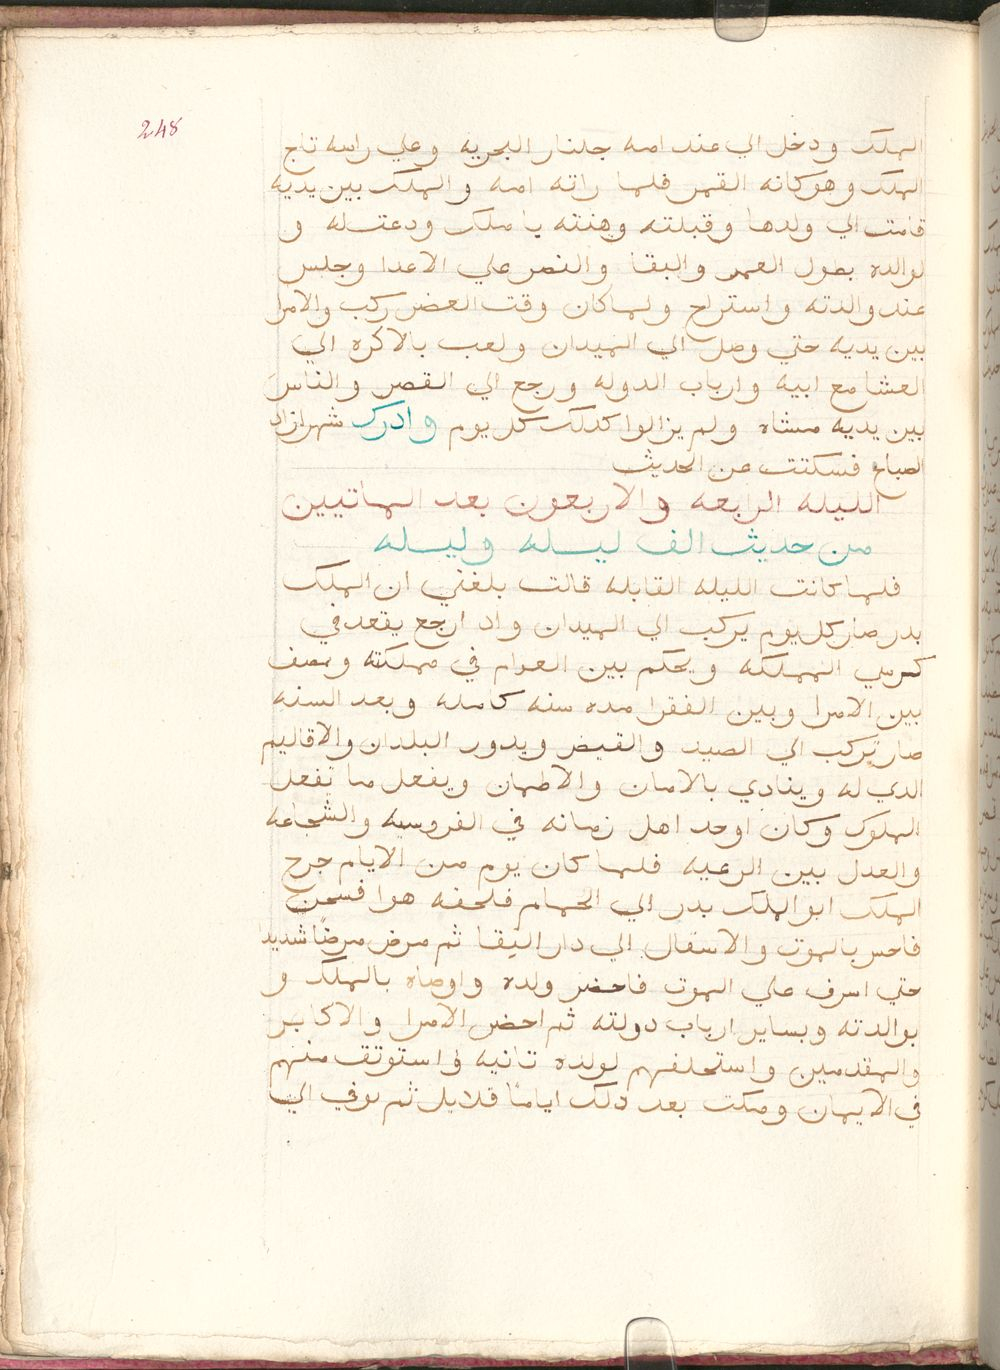 248
الملك ودخل الي عند امه جلنار البحريه وعلي راسه تاج
الملك وهو كانه القمر فلما راته امه والملك بين يديه
قامت الي ولدها وقبلته وهنته يا ملك ودعت له و
لوالده بطول العمر والبقا والنصر علي الاعدا وجلس
عند والدته واستراح ولما كان وقت العصر ركب والامرا
بين يديه حتي وصل الي الميدان ولعب بالاكره الي
العشا مع ابيه وارباب الدوله ورجع الي القصر والناس
بين يديه مشاه ولم يزالوا كدلك كل يوم وادرك شهرازاد
الصباح فسكتت عن الحديث
الليله الرابعه والاربعون بعد الماتيين
من حديث الف ليله وليله
فلما كانت الليله القابله قالت بلغني ان الملك
بدر صار كل يوم يركب الي الميدان واد ارجع يقعد في
كرسي المملكه ويحكم بين العوام في مملكته وينصف
بين الامرا وبين الفقرا مده سنه كامله وبعد السنه
صار يركب الي الصيد والقيض ويدور البلدان والاقاليم
الدي له وينادي بالامان والاطمان ويفعل ما تفعل
الملوك وكان اوحد اهل زمانه في الفروسيه والشجاعه
والعدل بين الرعيه فلما كان يوم من الايام خرج
الملك ابو الملك بدر الي الحمام فلحفه هوا فسخن
فاحس بالموت والانتقال الي دار البقا ثم مرض مرضًا شديدا
حتي اسرف علي الموت فاحضر ولده واوصاه بالملك و
بوالدته وبساير ارباب دولته ثم احضر الامرا والاكابر
والمقدمين واستحلفهم لولده تانيه واستوتق منهم
في الايمان ومكت بعد دلك ايامًا قلايل ثم توفي الي